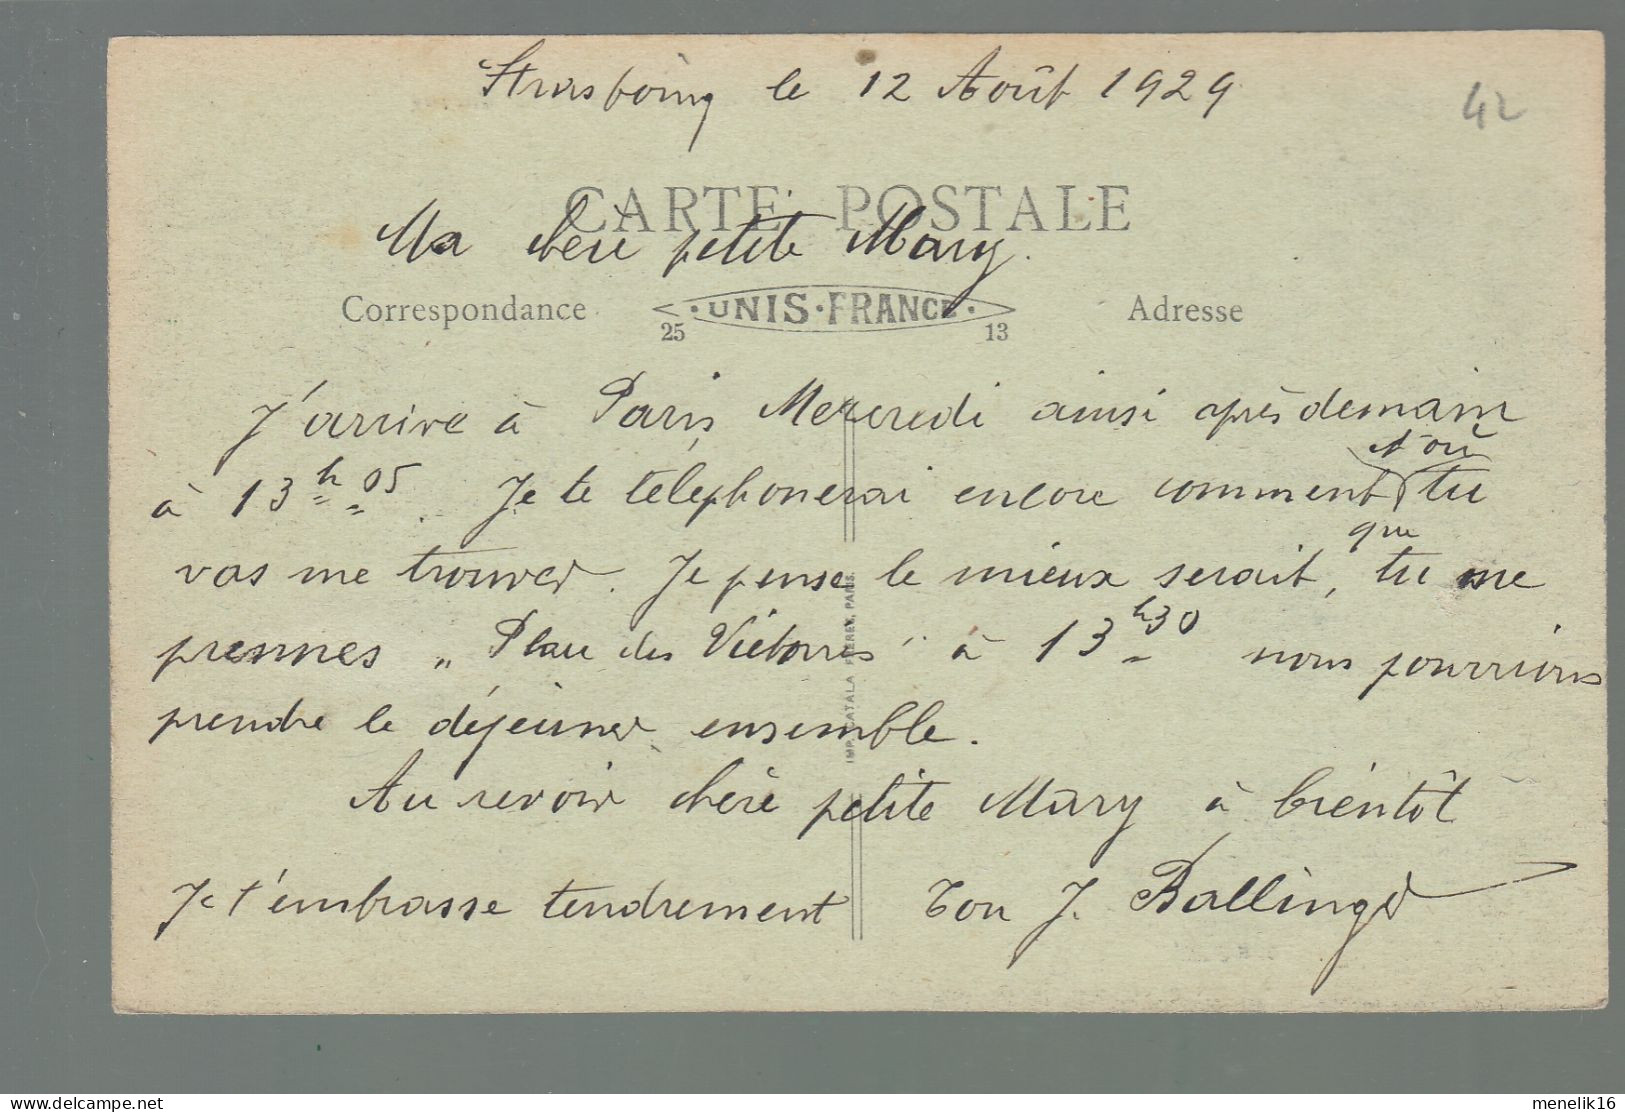 Strasbourg le 12 Août 1929
42
CARTE POSTALE
Ma chère petite Mary.
Correspondance
UNIS-FRANCE
25 13
Adresse
J'arrive à Paris, Mercredi ainsi après demain
et où
à 13 h 05. Je te téléphonerai encore comment tu
que
vas me trouver. Je pense le mieux serait, tu me
prennes „ Place des Victoires " à 13 h 30 nous pourrions
prendre le déjeuner ensemble.
Au revoir chère petite Mary à bientôt
Je t'embrasse tendrement Ton J. Ballinger
IMP. CATALA FRÈRES, PARIS.
delcampe.net
menelik16